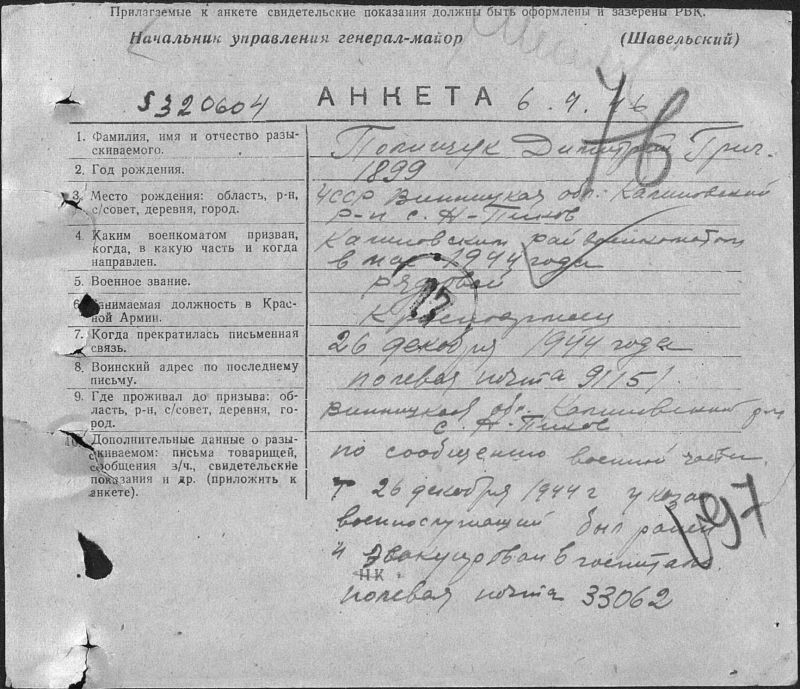 Прилагаемые к анкете свидетельские показания должны быть оформлены и заверены РВК.
Начальник управления генерал-майор (Шавельский)
76
§320604 АНКЕТА 6.9.46
1. Фамилия, имя и отчество разыскиваемого. Полищук Димитрий Григ.
2. Год рождения. 1899
3. Место рождения: область, р-н, с/совет, деревня, город. УССР Винницкая обл. Калиновский
р-н с. Н-Пиков
4. Каким военкоматом призван, когда, в какую часть и когда направлен. Калиновским райвоенкоматом
в мае 1944 года
5. Военное звание. рядовой
6. Занимаемая должность в Красной Армии. Красноармеец
7. Когда прекратилась письменная связь. 26 декабря 1944 года
8. Воинский адрес по последнему письму. полевая почта 91151
9. Где проживал до призыва: область, р-н, с/совет, деревня, город. Винницкая обл. Калиновский р-н
с. Н-Пиков
10. Дополнительные данные о разыскиваемом: письма товарищей, сообщения з/ч., свидетельские показания и др. (приложить к анкете). по сообщению военной части.
26 декабря 1944 г указан
военнослужащий был ранен
и эвакуирован в госпиталь
НК
полевая почта 33062
97